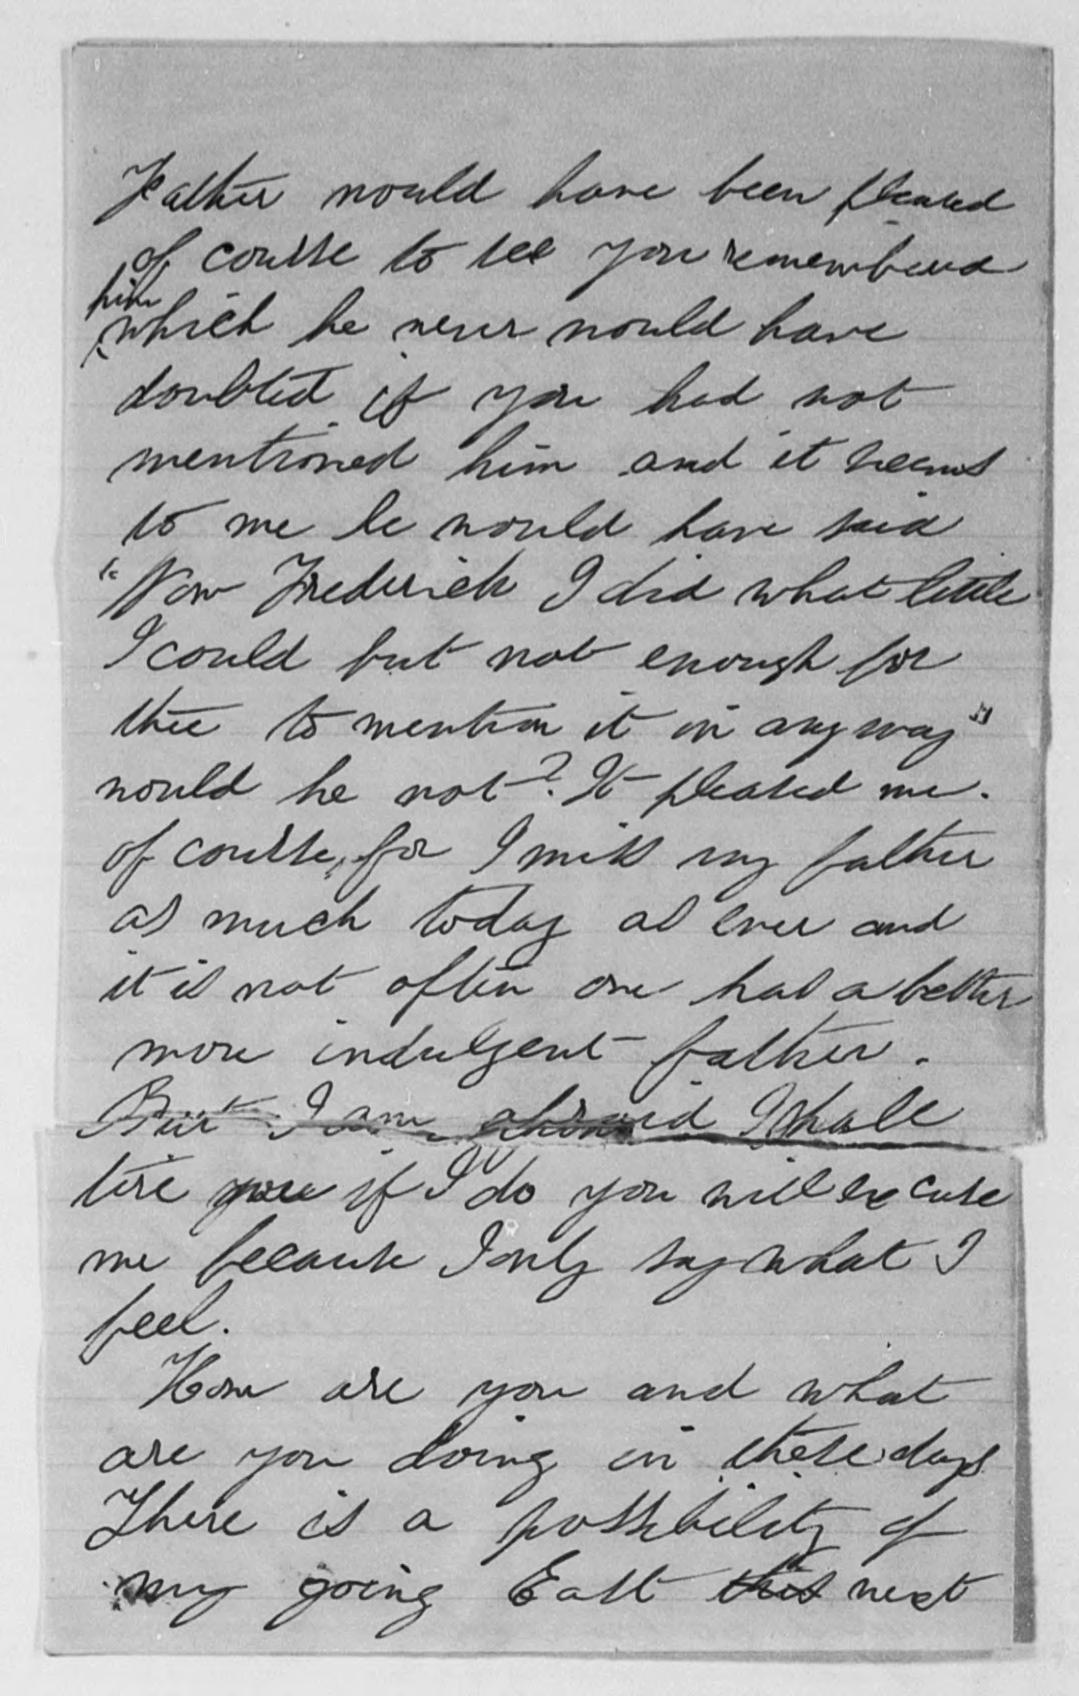 Father would have been pleased
of course to see you remembered
him
which he never would have
doubted if you had not
mentioned him and it seems
to me he would have said
"Now Frederick I did what little
I could but not enough for
thee to mention it in any way"
would he not? It pleased me.
of course, for I miss my father
as much today as ever and
it is not often one has a better
more indulgent father.
But I am afraid I shall
tire you if I do you will excuse
me because I only say what I
feel.
How are you and what
are you doing in these days
There is a possibility of
my going East this next